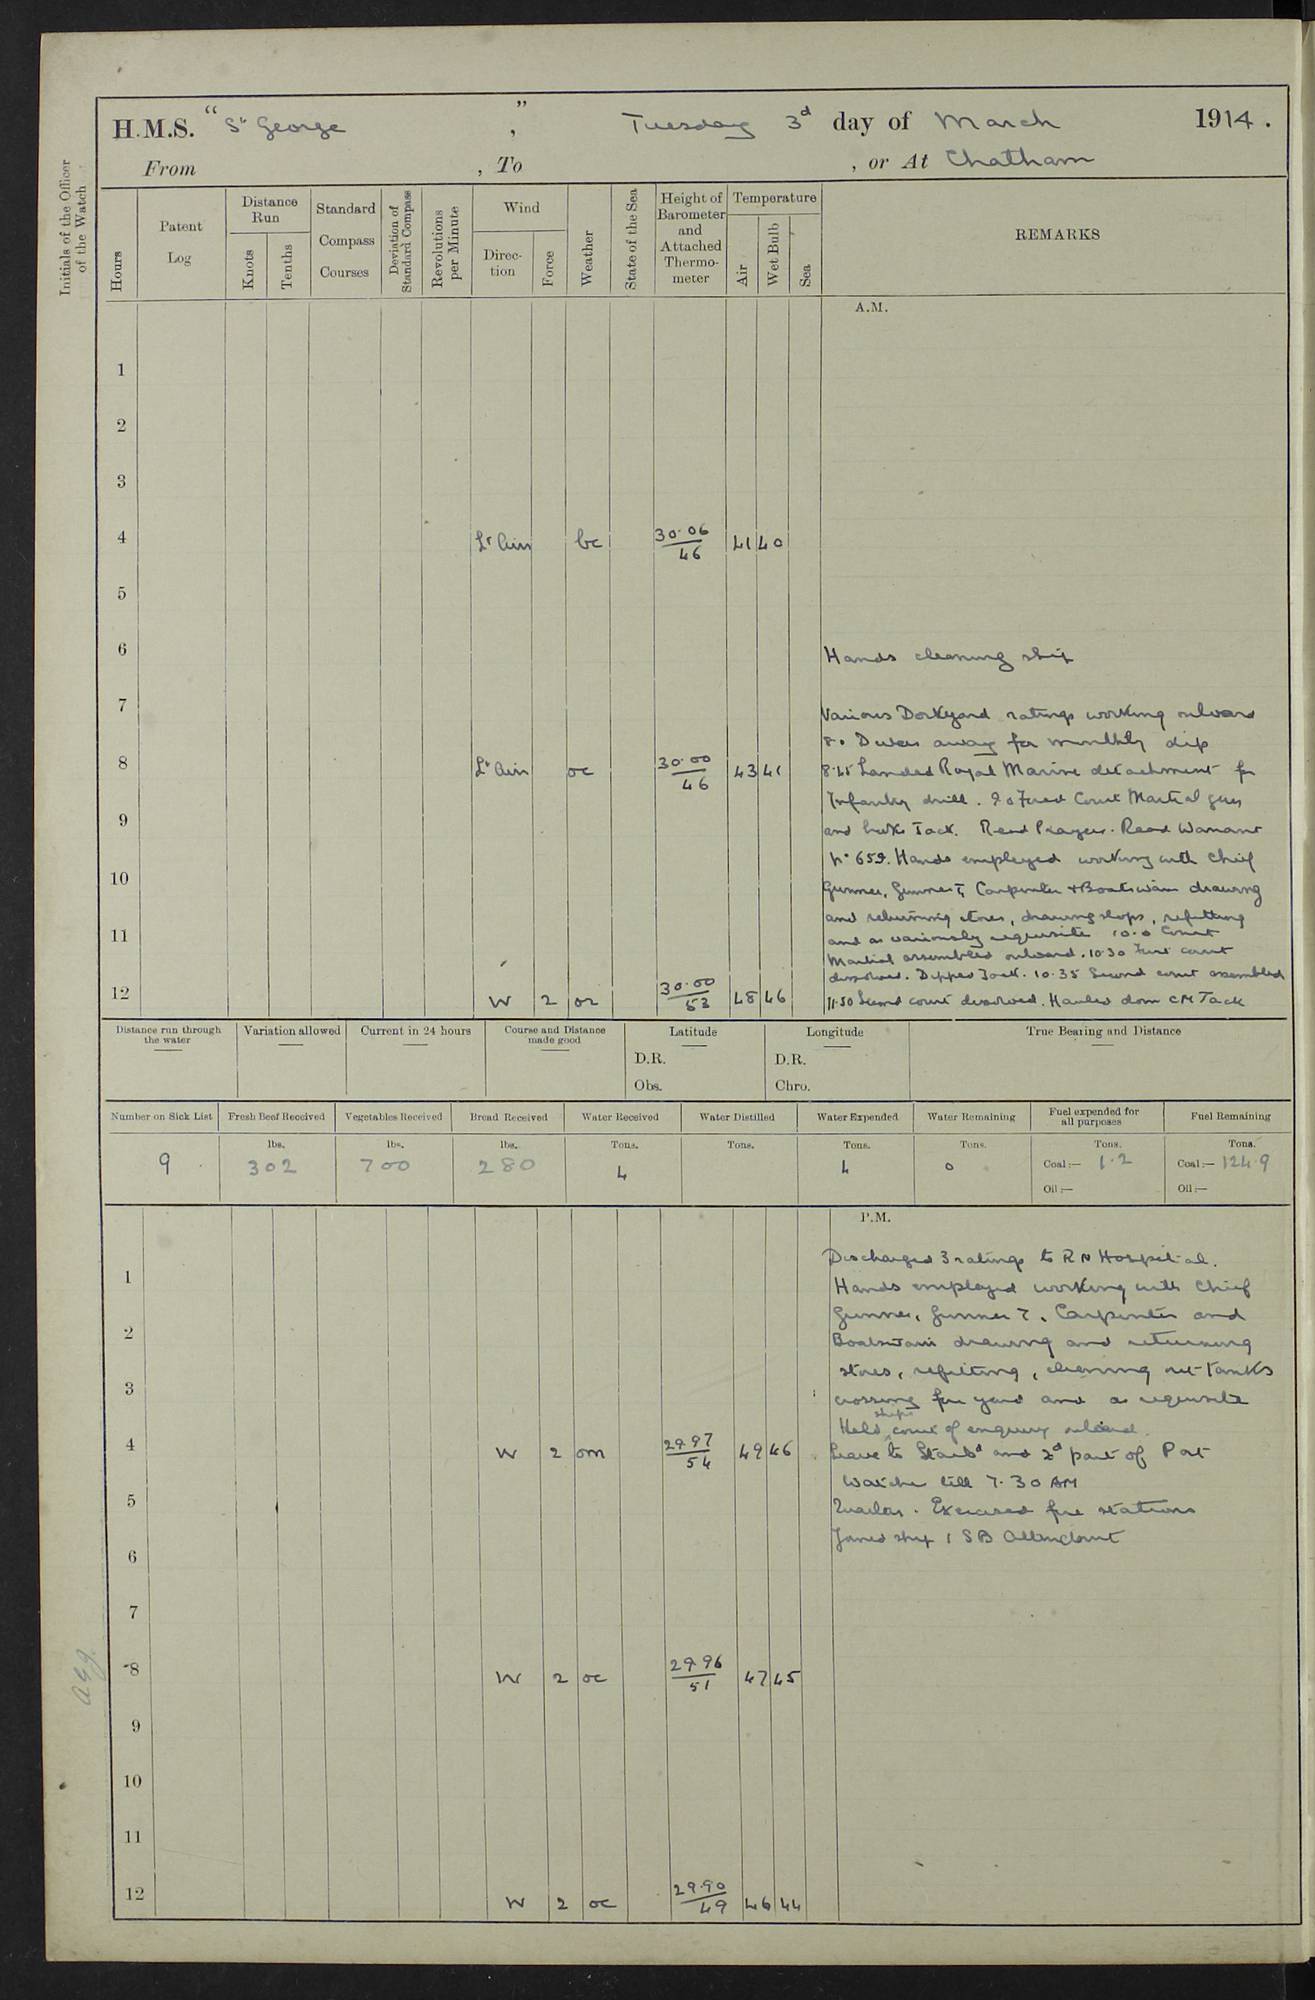 H.M.S. "St George", Tuesday 3d day of March 1914.
From , To , or At Chatham
Initials of the Officer of the Watch
Hours
Patent Log
Distance Run
Knots
Tenths
Standard Compass Courses
Deviation of Standard Compass
Revolutions per Minute
Wind
Direction
Force
Weather
State of the Sea
Height of Barometer and Attached Thermometer
Temperature
Air
Wet Bulb
Sea
REMARKS
A.M.
1
2
3
4 Lt Airs bc 30.06/46 41 40
5
6 Hands cleaning ship
7 Various Dockyard ratings working onboard
8.0 Divers away for monthly dip
8 Lt Airs oc 30.00/46 43 41 8.45 Landed Royal Marine detachment for
Infantry drill. 9.0 Fired Court Martial gun
9 and broke Jack. Read Prayers. Read Warrant
No 659. Hands employed working with Chief
10 Gunner, Gunner T, Carpenter & Boatswain drawing
and returning stores, drawing slops, refitting
11 and as variously requisite 10.0 Court
Martial assembled onboard. 10.30 First court
dissolved. Dipped Jack. 10.35 Second court assembled
12 W 2 oc 30.00/53 48 46 11.50 Second court dissolved. Hauled down CM Jack
Distance run through the water
Variation allowed
Current in 24 hours
Course and Distance made good
Latitude
D.R.
Obs.
Longitude
D.R.
Chro.
True Bearing and Distance
Number on Sick List
Fresh Beef Received
Vegetables Received
Bread Received
Water Received
Water Distilled
Water Expended
Water Remaining
Fuel expended for all purposes
Fuel Remaining
lbs. lbs. lbs. Tons. Tons. Tons. Tons. Tons. Tons.
9 302 700 280 4 4 0 Coal:— 1.2 Coal:— 124.9
Oil:— Oil:—
P.M.
Discharged 3 ratings to RN Hospital.
1 Hands employed working with Chief
Gunner, Gunner T, Carpenter and
2 Boatswain drawing and returning
stores, refitting, cleaning out tanks
3 crossing fore yard and as requisite
Held ships court of enquiry onboard.
4 W 2 om 29.97/54 49 46 Leave to Starbd and 2d part of Port
Watches till 7.30 AM
5 Quarters. Exercised fire stations
Joined ship 1 SB Attendant
6
7
8 W 2 oc 29.96/51 47 45
9
10
11
12 W 2 oc 29.90/49 46 44